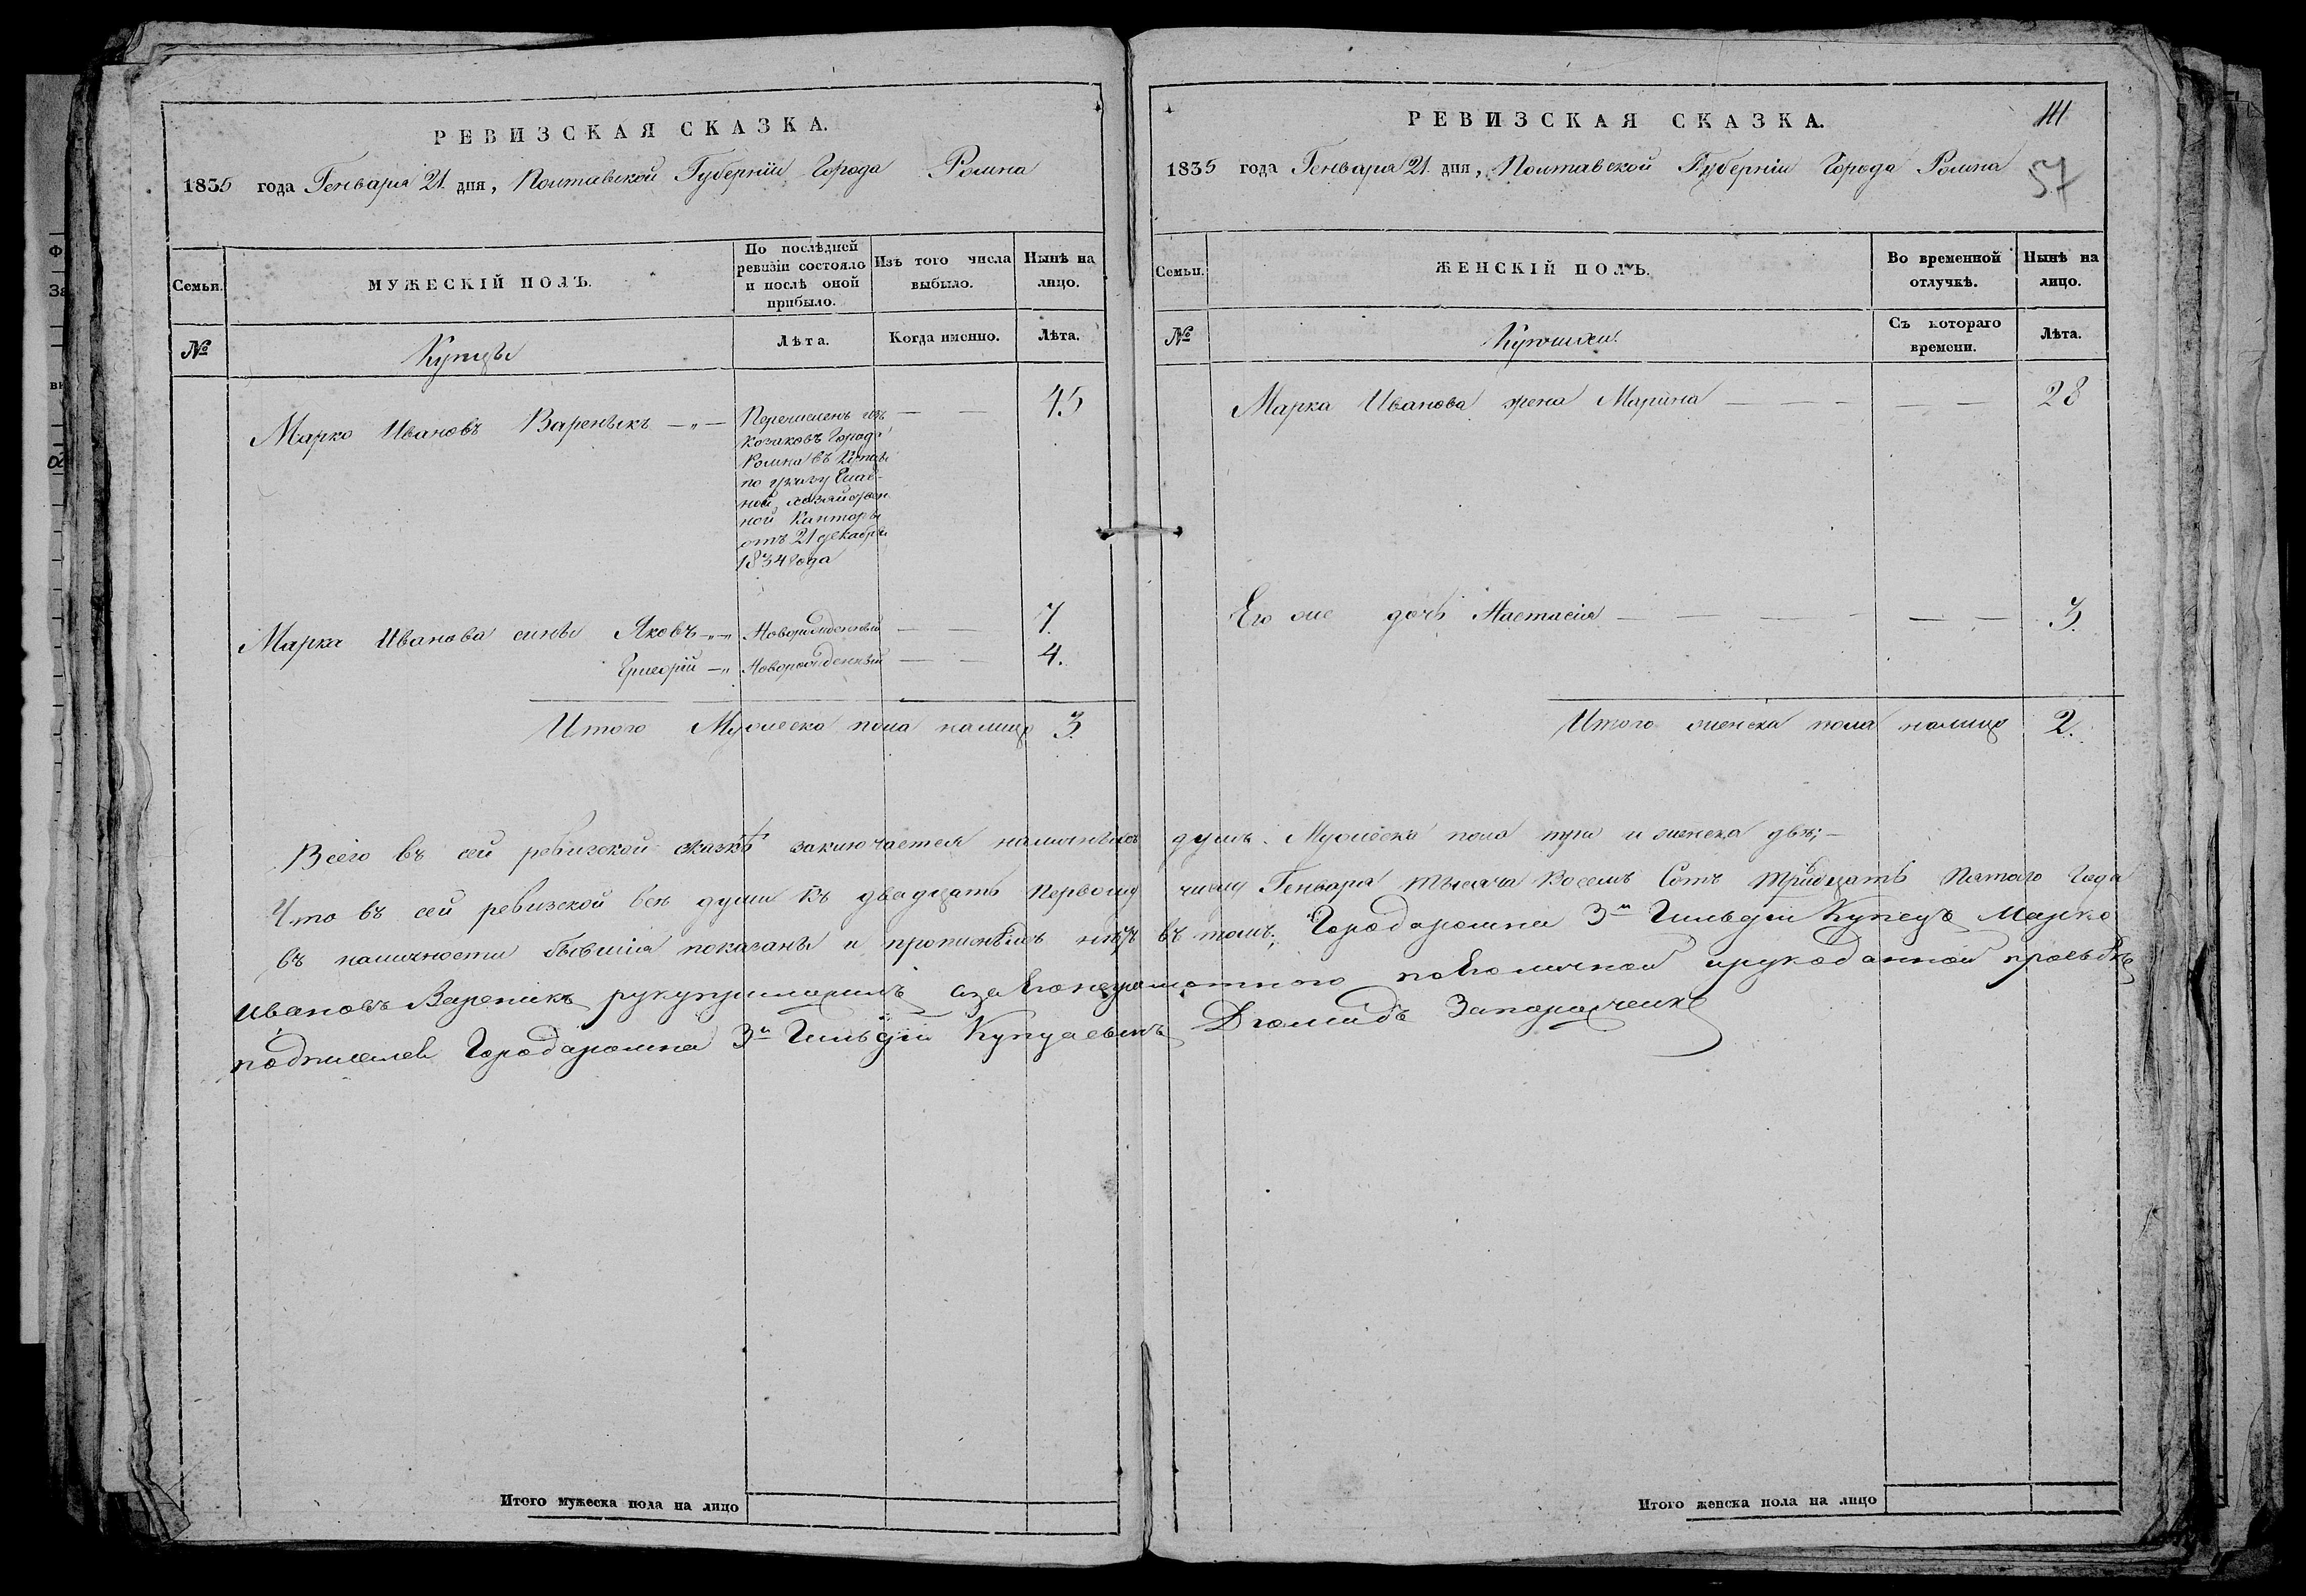 РЕВИЗСКАЯ СКАЗКА.
1835 года Генваря 21. дня, Полтавской Губернии Города Ромна
Семьи.
МУЖЕСКІЙ ПОЛЪ.
По послѣдней ревизіи состояло и послѣ оной прибыло.
Изъ того числа выбыло.
Нынѣ на лицо.
№
Купцы
Лѣта.
Когда именно.
Лѣта.
Марко Ивановъ Вареныкъ
Перечисленъ изъ
козаковъ Города
Ромна въ Купцы
по указу
ной
ной Канторы
отъ 21 декабря
1834 года
45
Марка Иванова сины Яковъ Новорожденный 7.
Григорій Новорожденный 4.
Итого Мужеска пола налицо 3.
Итого мужеска пола на лицо
РЕВИЗСКАЯ СКАЗКА.
111
1835 года Генваря 21. дня, Полтавской Губерніи Города Ромна
57
Семьи.
ЖЕНСКІЙ ПОЛЪ.
Во временной отлучкѣ.
Нынѣ на лицо.
№
Купчихи.
Съ котораго времени.
Лѣта.
Марка Иванова жена Марина 28
Его же дочь Настасія 3.
Итого женска пола налицо 2.
Всего въ сей ревизской сказкѣ заключается наличныхъ душъ. Мужеска пола три и женска двѣ;
Что въ сей ревизской всѣ души къ двадцать Первому числу Генваря тысяча Восемъ Сотъ тридцать Пятаго Года
въ наличности бывшія показаны и прописныхъ нѣтъ въ томъ; Городаромна 3й Гильдіи Купецъ Марко
Ивановъ Вареникъ рукуприложилъ азаЕгонеграмотного поЕголичной ирукоданной прозьбѣ
подписалса Городаромна 3й Гильдіи Запорожченко
Итого женска пола на лицо